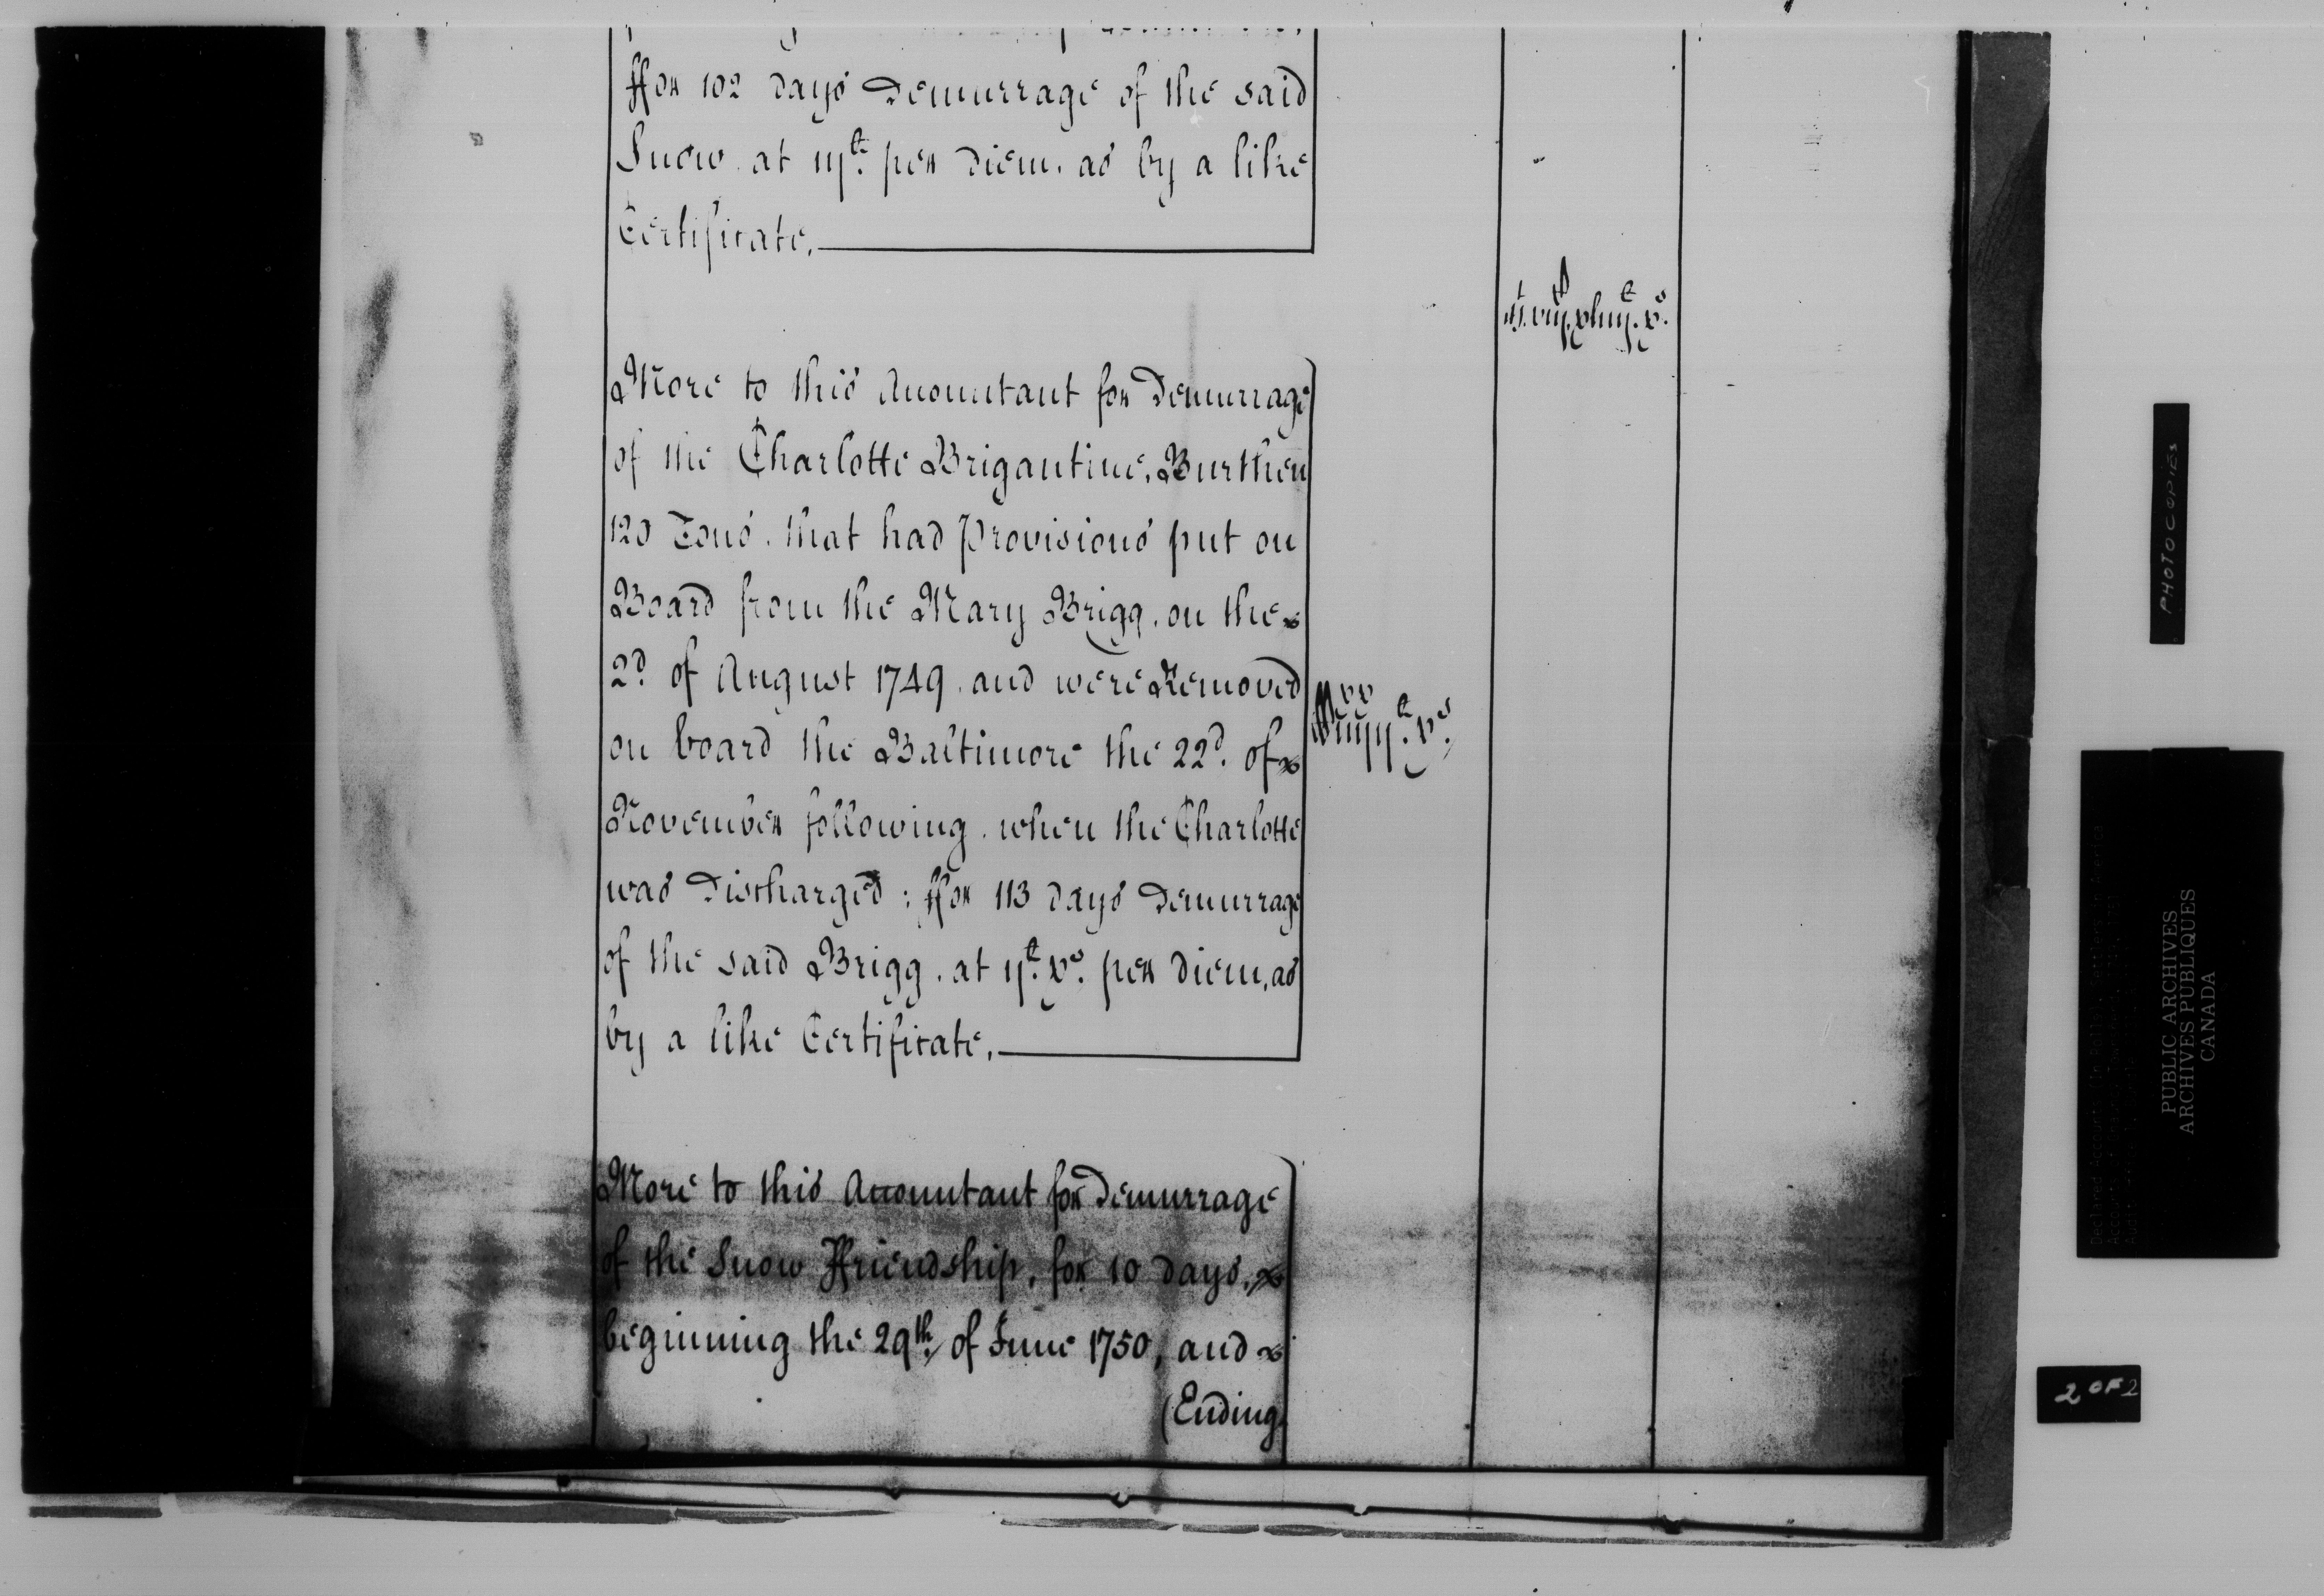 ffor 102 days Demurrage of the said
Snow at iij£. per diem. as by a like
Certificate.
More to this Accountant for Demurrage
of the Charlotte Brigantine, Burthen
120 Tons. that had Provisions put on
Board from the Mary Brigg. on the
2d. of August 1749. and were Removed
on board the Baltimore the 22d. of
November following. when the Charlotte
was Discharged: ffor 113 days Demurrage
of the said Brigg. at ij£. xs. per diem, as
by a like Certificate.
More to this Accountant for Demurrage
of the Snow ffriendship, for 10 days,
beginning the 29th. of June 1750, and
(Ending
PHOTOCOPIES
PUBLIC ARCHIVES
ARCHIVES PUBLIQUES
CANADA
2 OF 2